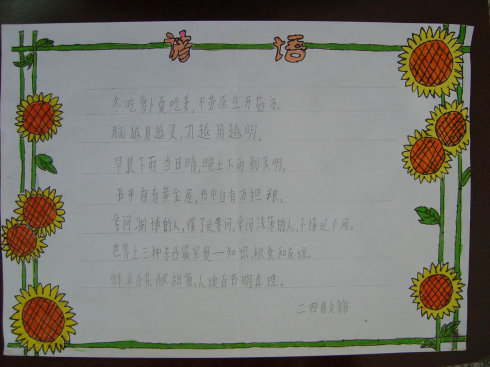 谚语
冬吃萝卜夏吃姜,不劳医生开药方。
脑越用越灵,刀越用越明。
早晨下雨当日晴,晚上下雨到天明。
书中自有黄金屋,书中自有万担粮。
学问渊博的人,懂了还要问,学问浅薄的人,不懂还不问。
世界上三种东西最宝贵—知识、粮食和友谊。
蜂采百花酿甜蜜,人读百书明真理。
二四